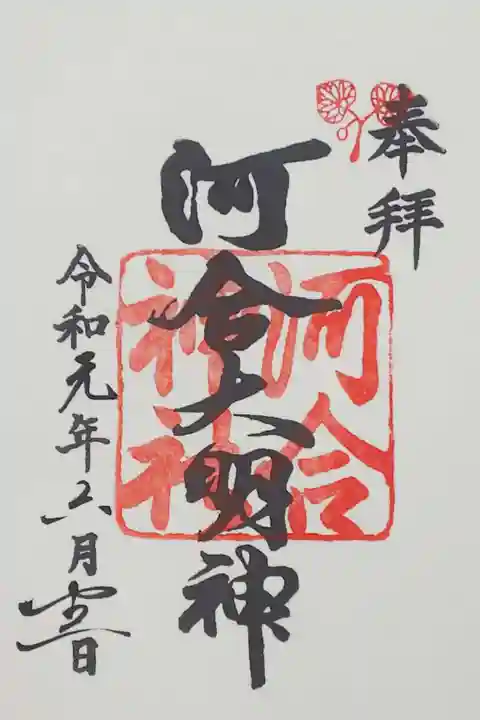 奉拝
河合大明神
河合
神社
令和元年六月日